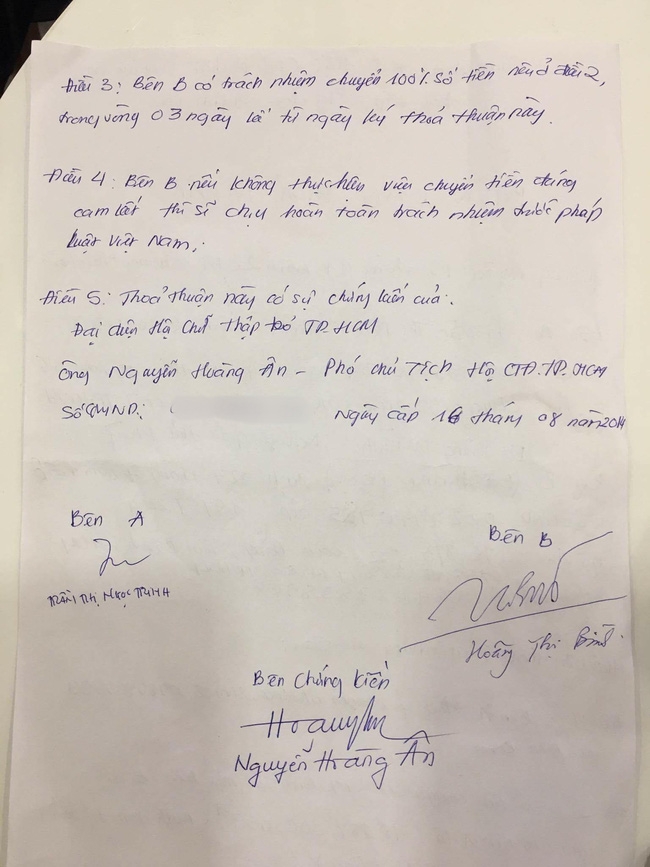 Điều 3: Bên B có trách nhiệm chuyển 100% số tiền nêu ở điều 2,
trong vòng 03 ngày kể từ ngày ký thoả thuận này.
Điều 4: Bên B nếu không thực hiện việc chuyển tiền đúng
cam kết thì sẽ chịu hoàn toàn trách nhiệm trước pháp
luật Việt Nam.
Điều 5: Thoả thuận này có sự chứng kiến của:
Đại diện Hội Chữ thập đỏ TP.HCM
Ông Nguyễn Hoàng Ân - Phó chủ Tịch Hội CTĐ.TP.HCM
Số CMND: Ngày cấp 16 tháng 08 năm 2014
Bên A
Bên B
TRẦN THỊ NGỌC TRINH
Hoàng Thị
Bên chứng kiến
Nguyễn Hoàng Ân